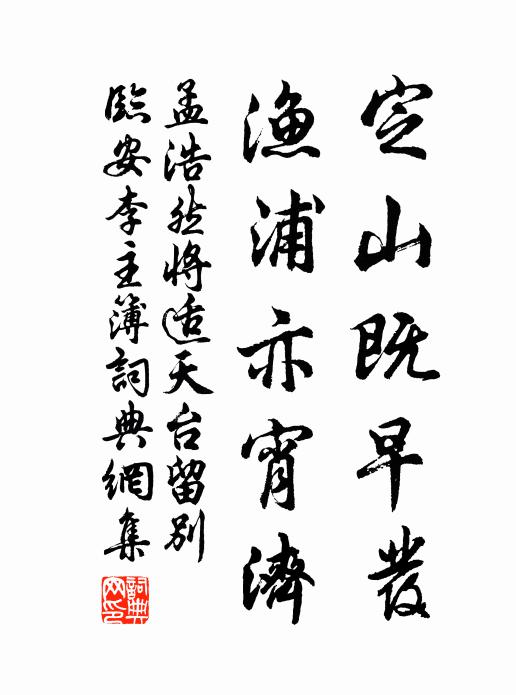 定山既早發
漁浦亦宵濟
孟浩然將适天台留別
臨安李主簿詞典網集
詞典網印